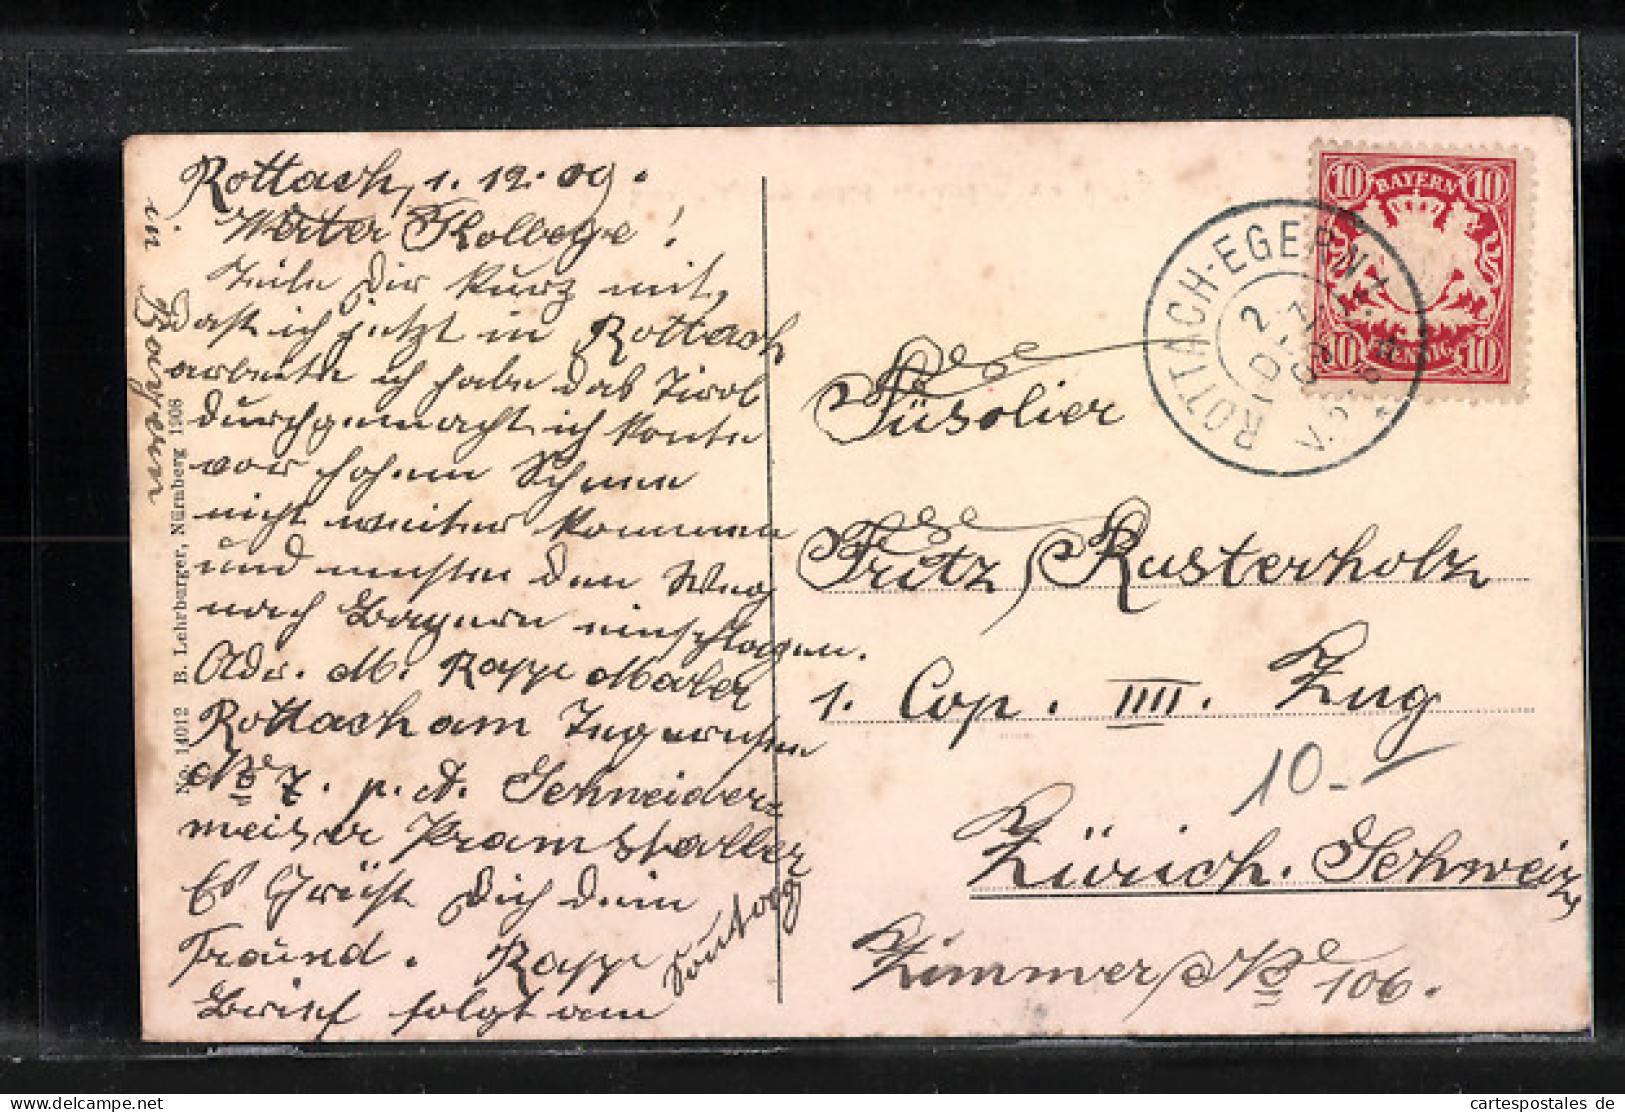 Rottach, 1.12.09.
Werter Kollege!
Teile Dir kurz mit,
dass ich jetzt in Rottach
in Bayern
arbeite ich habe das Tirol
durchgemacht ich konte
vor hohem Schnee
nicht weiter kommen
und musten den Weg
nach Bayern einschlagen.
Adr. M. Rapp Maler
Rottach am Tegernsee
No 7. p. A. Schneider=
meister Pramstaller
Es Grüst Dich dein
Fraund. Rapp
Brief folgt am
Sontag
No. 14012 B. Lehrburger, Nürnberg 1908
BAYERN
10 10
10 PFENNIG 10
ROTTACH-EGERN
2 DE
Füsolier
Fritz Rusterholz
1. Cop. IIII. Zug
10.-
Zürich. Schweiz
Zimmer No 106.
cartespostales de